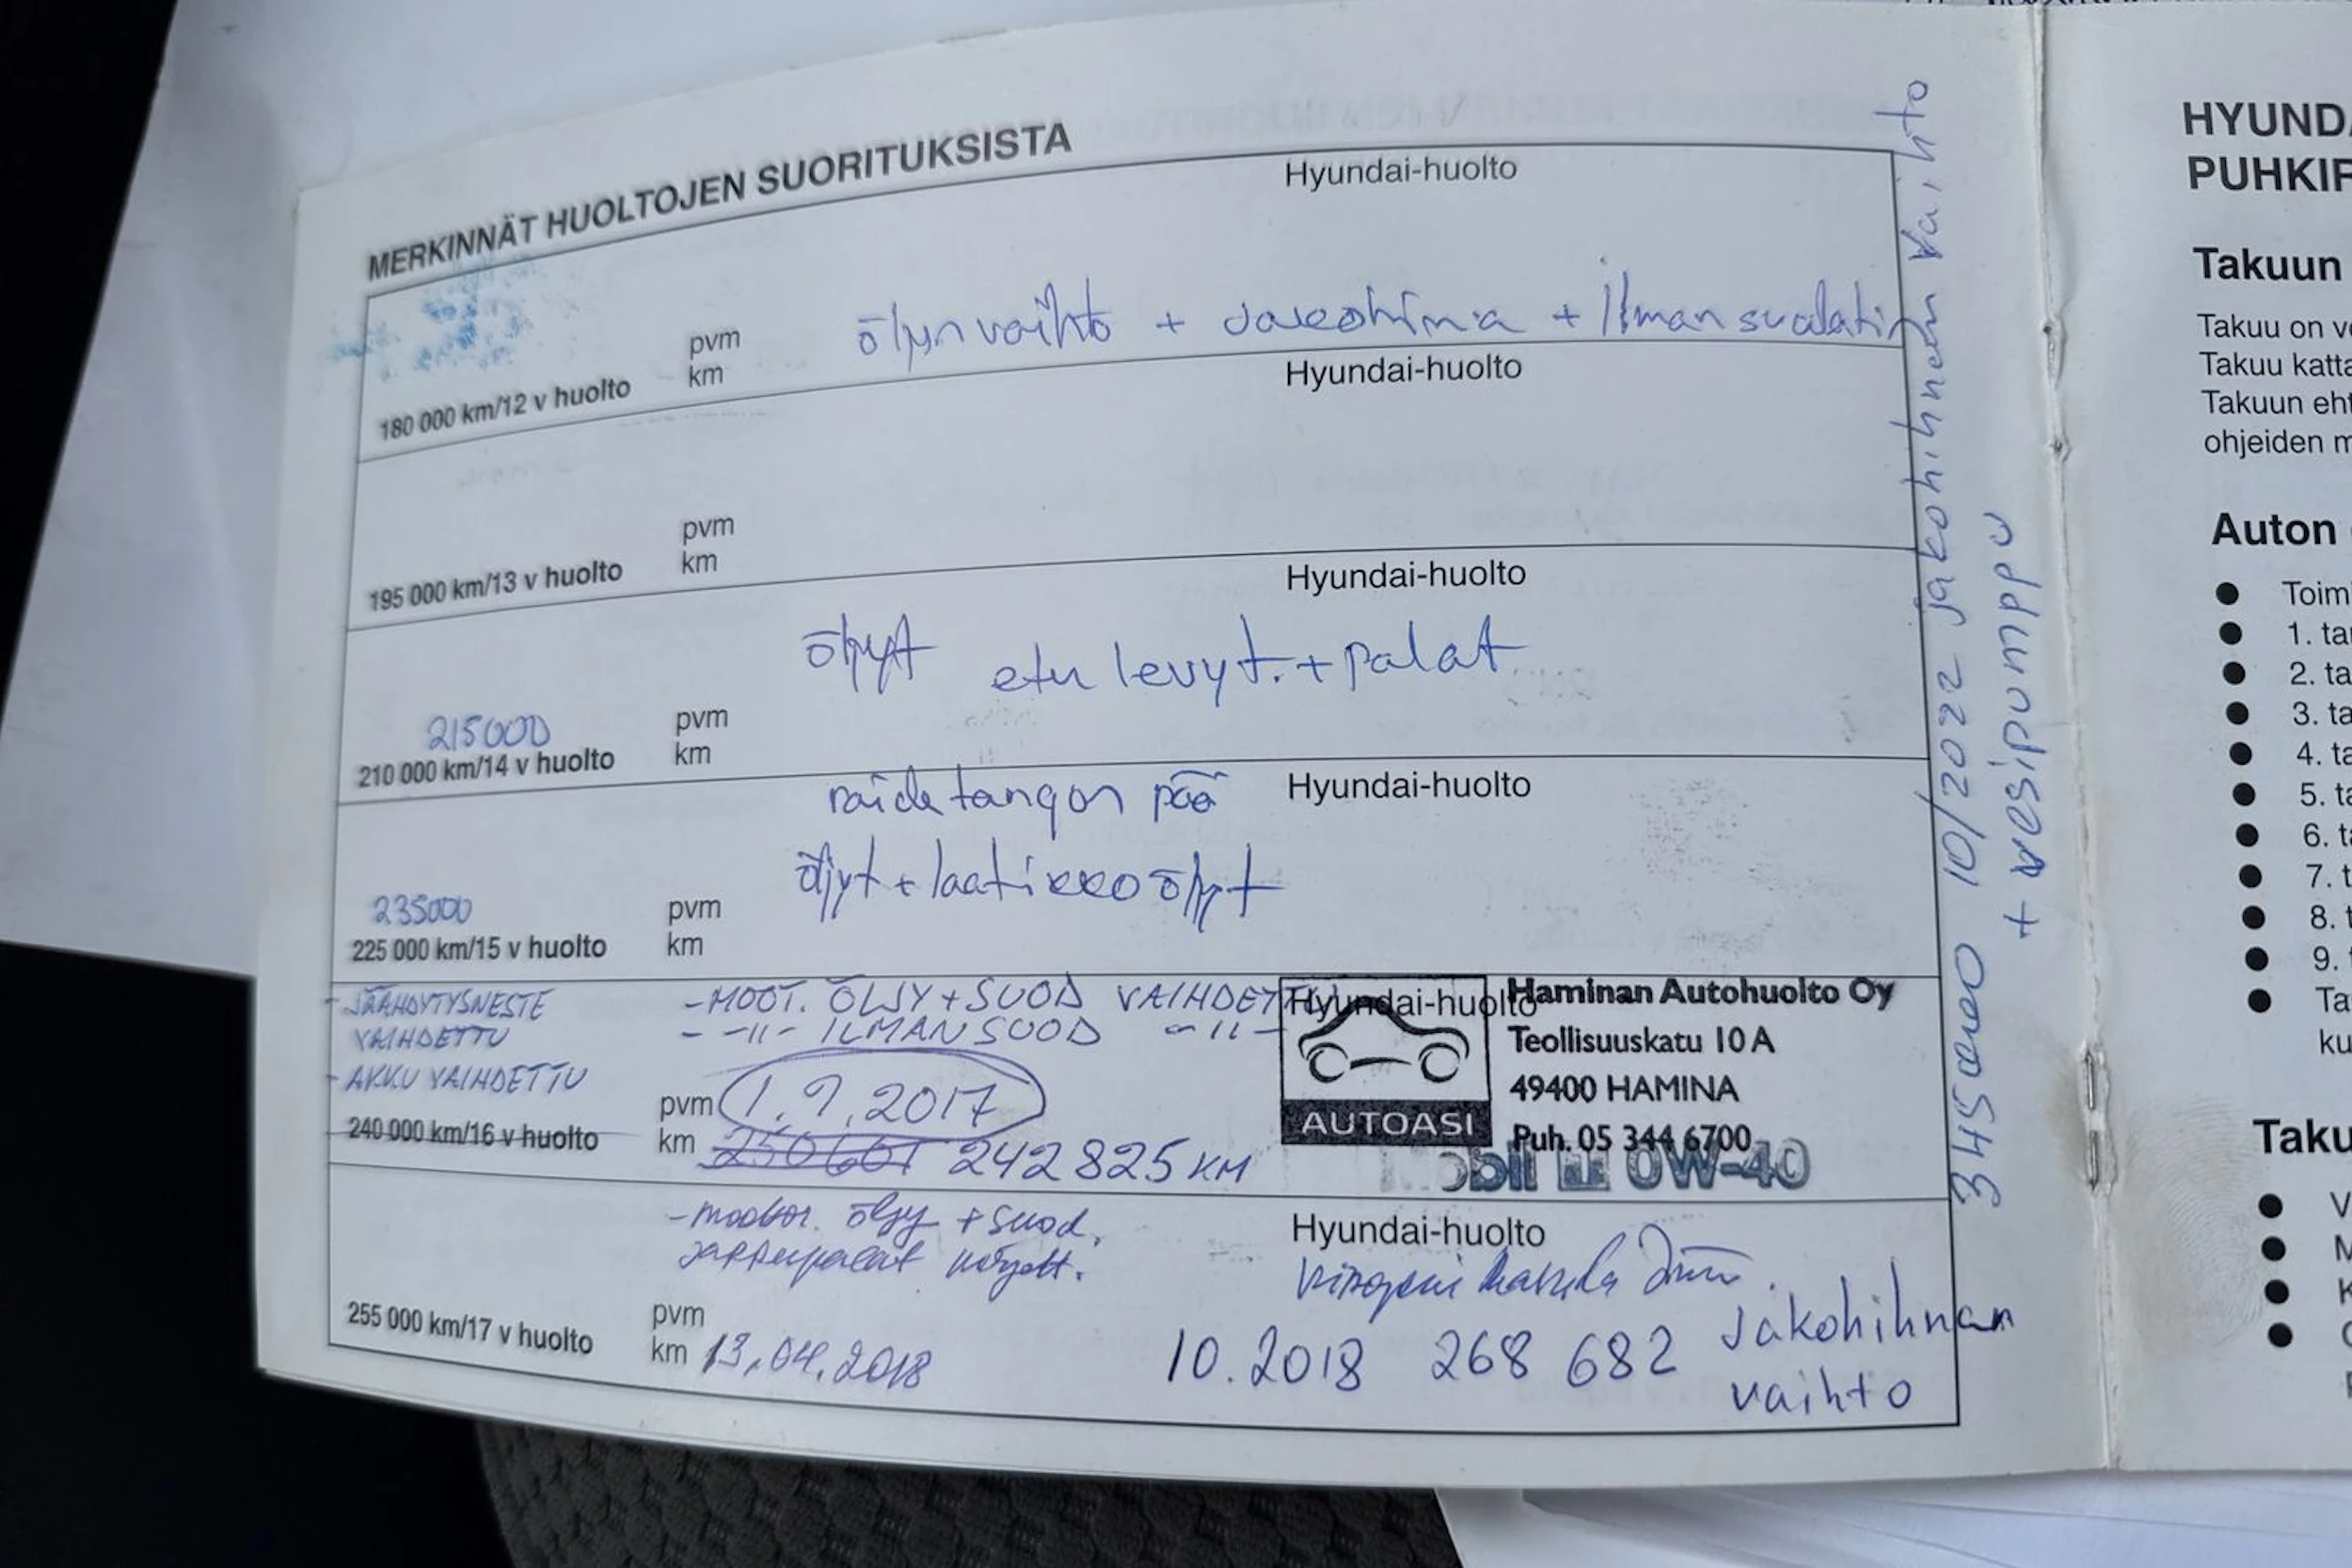 MERKINNÄT HUOLTOJEN SUORITUKSISTA
Hyundai-huolto
öljynvaihto + Jakohihna + Ilmansuodatin
pvm
km
180 000 km/12 v huolto
Hyundai-huolto
pvm
km
195 000 km/13 v huolto
Hyundai-huolto
öljyt etu levyt. + palat
215000
pvm
km
210 000 km/14 v huolto
Hyundai-huolto
raidetangon pää
öljyt + laatikko öljyt
235000
pvm
km
225 000 km/15 v huolto
- JÄÄHDYTYSNESTE
VAIHDETTU
- AKKU VAIHDETTU
- MOOT. ÖLJY + SUOD VAIHDETTU
- -11- ILMANSUOD -11-
Hyundai-huolto
Haminan Autohuolto Oy
Teollisuuskatu 10 A
49400 HAMINA
Puh. 05 344 6700
AUTOASI
pvm 1.9.2017
km 250601 242825 KM
240 000 km/16 v huolto
Mobil 0W-40
Hyundai-huolto
- moottor. öljy + suod.
jarrupalat
pvm
km 13.04.2018
255 000 km/17 v huolto
10.2018 268 682 Jakohihnan
vaihto
345000 10/2022 jakohihnan vaihto
+ vesipumppu
HYUNDA
PUHKIR
Takuun
Takuu on v
Takuu katta
Takuun eht
ohjeiden m
Auton
● Toim
● 1. ta
● 2. ta
● 3. ta
● 4. ta
● 5. ta
● 6. ta
● 7. t
● 8. t
● 9. t
● Ta
ku
Taku
● V
● M
● K
●